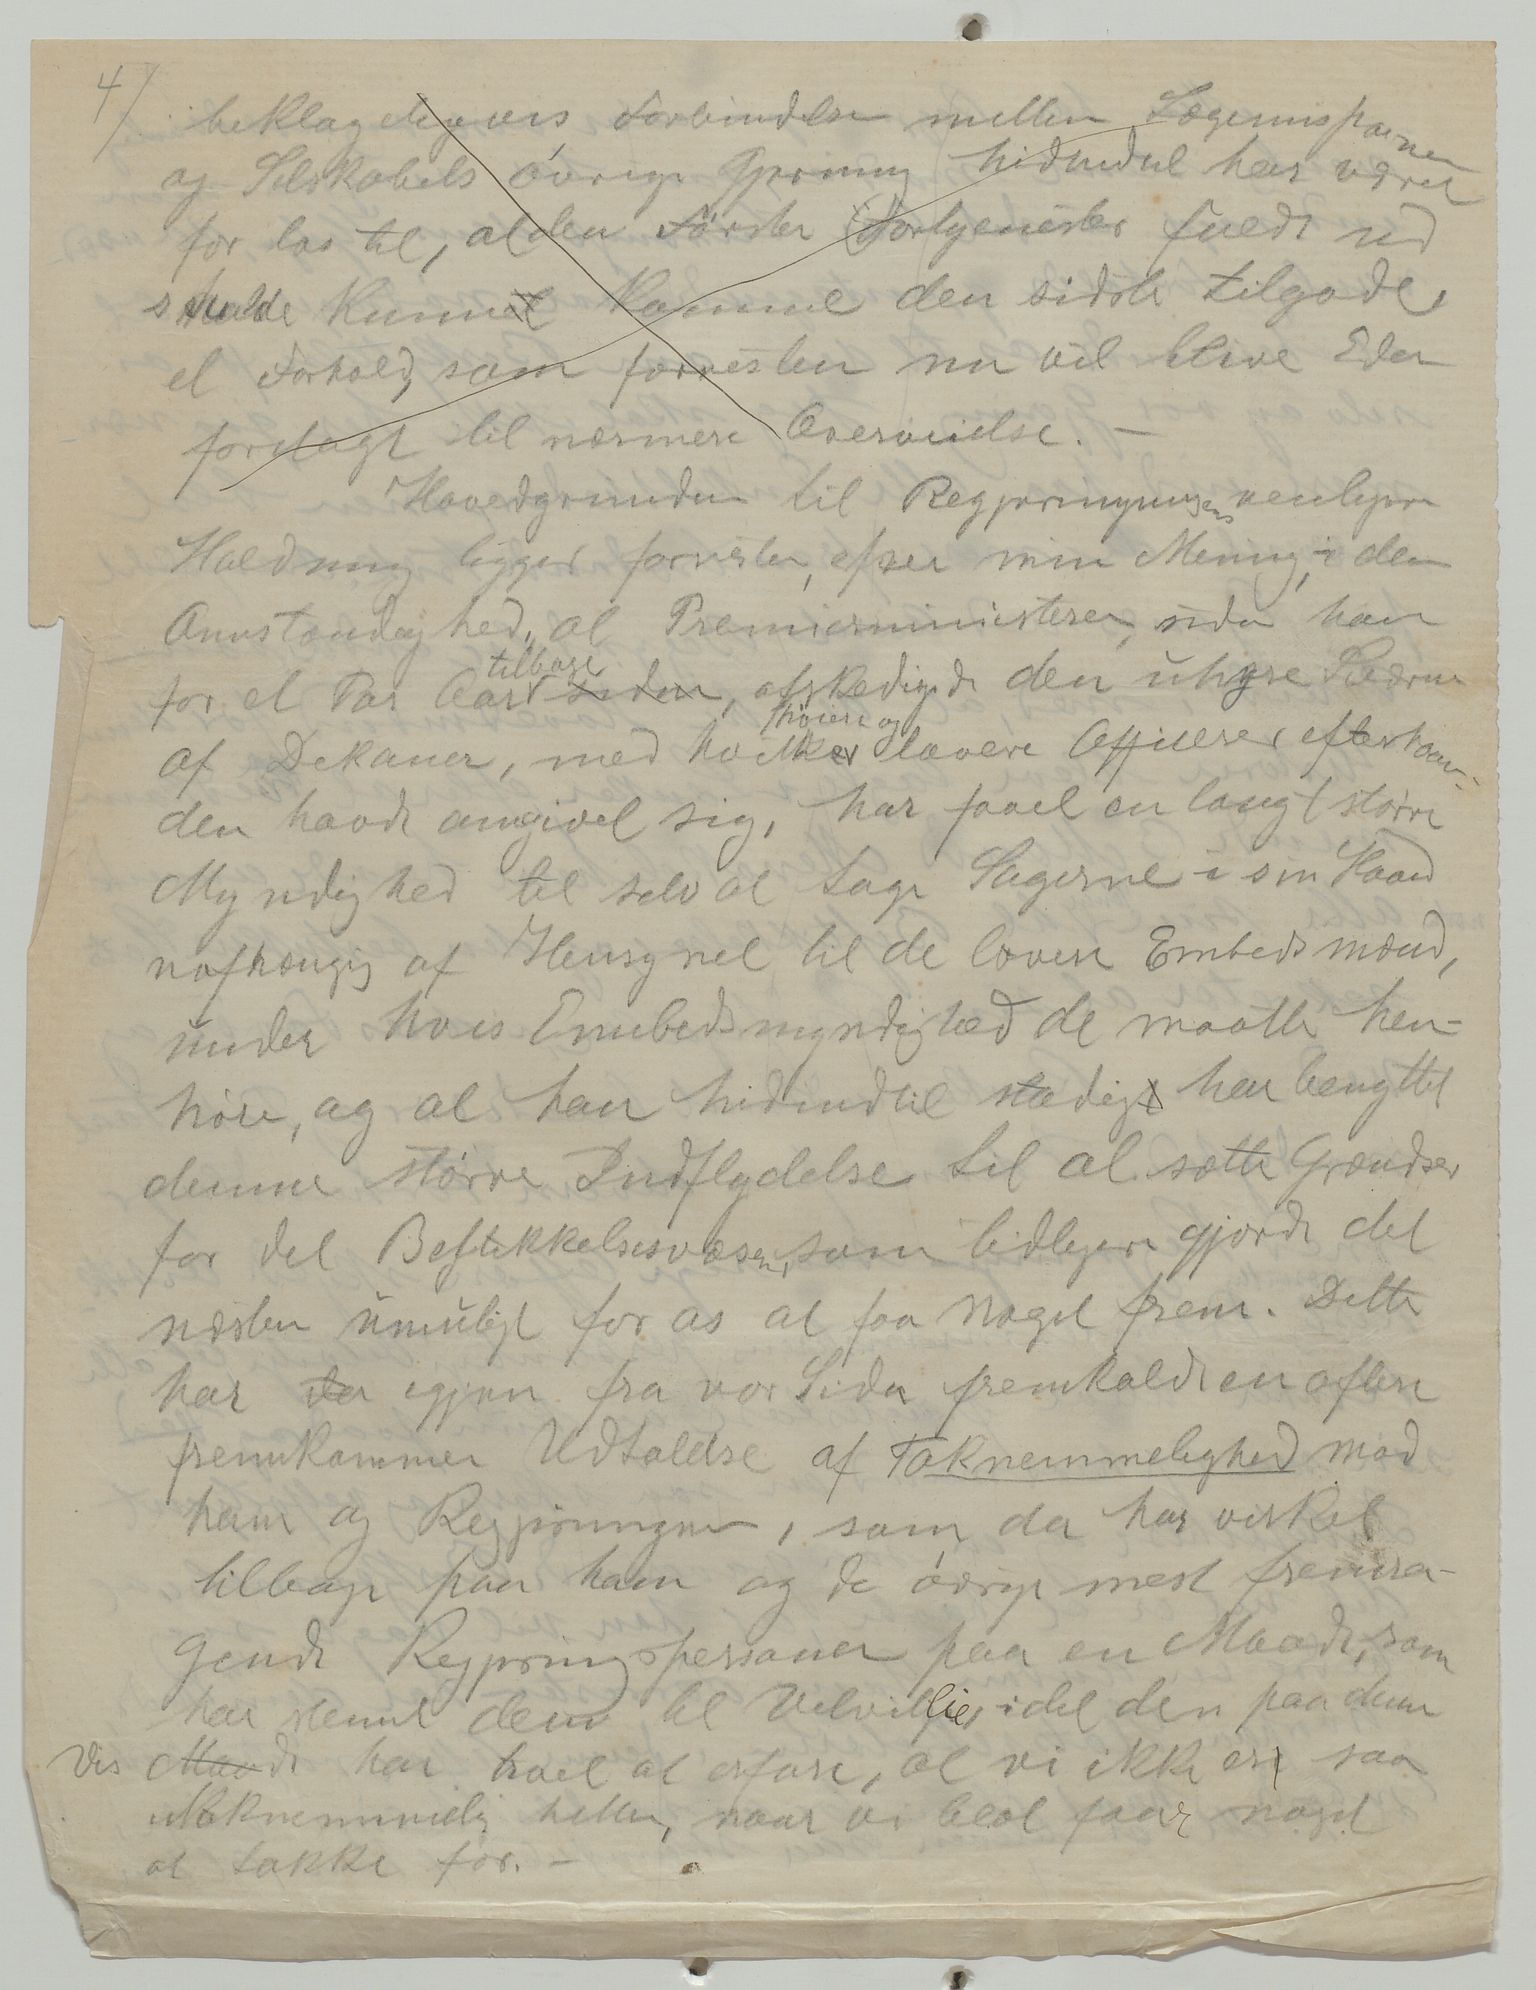 4/
beklageligvis Forbindelsen mellem Lægemissionen
og Selskabets øvrige Gjerning hidindtil har været
for løs til, at den førstes Fortjenester fuldt ud
skulde kunne komme den sidste tilgode,
et Forhold, som forresten nu vil blive Eder
forelagt til nærmere Overveielse. —
Hovedgrunden til Regjeringens venligere
Holdning ligger forresten, efter min Mening, i den
Omstændighed, at Premierministeren, siden han
for et Par Aar tilbage siden, afskedigede den uhyre Sværm
af Dekaner, med hvilke høiere og lavere Officerer efterhaan-
den havde omgivet sig, har faaet en langt større
Myndighed til selv at tage Sagerne i sin Haand
uafhængig af Hensynet til de lavere Embedsmænd,
under hvis Embedsmyndighed de maatte hen-
høre, og at han hidindtil stadigt har benyttet
denne større Indflydelse til at sætte Grændser
for det Bestikkelsesvæsen, som tidligere gjorde det
næsten umuligt for os at faa noget frem. Dette
har da igjen fra vor Side fremkaldt en oftere
fremkommen Udtalelse af Taknemmelighed mod
ham og Regjeringen, som da har virket
tilbage paa ham og de øvrige mest fremra-
gende Regjeringspersoner paa en Maade, som
har stemt dem til Velvillie, idet den paa denne
Vis Maade har faaet at erfare, at vi ikke er saa
utaknemmelig heller, naar vi blot faar noget
at takke for. —